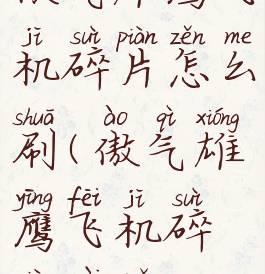 jī suì piàn zěn me
机碎片怎么
shuā ào qì xióng
刷(傲气雄
yīng fēi jī suì
鹰飞机碎